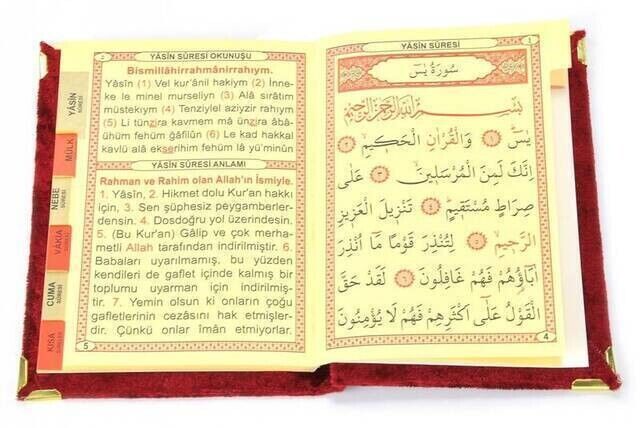 YÂSİN
SÛRESİ
MÜLK
NEBE
SÛRESİ
VAKIA
CUMA
SÛRESİ
KISA
YÂSÎN SÛRESİ OKUNUŞU
Bismillâhirrahmânirrahıym.
Yâsîn (1) Vel kur'ânil hakiym (2) İnne-
ke le minel murseliyn (3) Alâ sırâtim
müstekıym (4) Tenziylel aziyzir rahıym
(5) Li tünzira kavmem mâ ünzira âbâ-
ühüm fehüm ğâfilûn (6) Le kad hakkal
kavlü alâ ekserihim fehüm lâ yü'minûn
YÂSÎN SÛRESİ ANLAMI
Rahman ve Rahim olan Allah'ın İsmiyle.
1. Yâsîn, 2. Hikmet dolu Kur'an hakkı
için, 3. Sen şüphesiz peygamberler-
densin. 4. Dosdoğru yol üzerindesin.
5. (Bu Kur'an) Gâlip ve çok merha-
metli Allah tarafından indirilmiştir. 6.
Babaları uyarılmamış, bu yüzden
kendileri de gaflet içinde kalmış bir
toplumu uyarman için indirilmiş-
tir. 7. Yemin olsun ki onların çoğu
gafletlerinin cezasını hak etmişler-
dir. Çünkü onlar îmân etmiyorlar.
5
YÂSÎN SÛRESİ
سُورَةُ يٰسٓ
بِسْمِ اللّٰهِ الرَّحْمٰنِ الرَّحِيمِ
يٰسٓ ﴿١﴾ وَالْقُرْاٰنِ الْحَكِيمِ ﴿٢﴾
اِنَّكَ لَمِنَ الْمُرْسَلِينَ ﴿٣﴾ عَلٰى
صِرَاطٍ مُسْتَقِيمٍ ﴿٤﴾ تَنْزِيلَ الْعَزِيزِ
الرَّحِيمِ ﴿٥﴾ لِتُنْذِرَ قَوْمًا مَٓا اُنْذِرَ
اٰبَٓاؤُ۬هُمْ فَهُمْ غَافِلُونَ ﴿٦﴾ لَقَدْ حَقَّ
الْقَوْلُ عَلٰٓى اَكْثَرِهِمْ فَهُمْ لَا يُؤْمِنُونَ
4